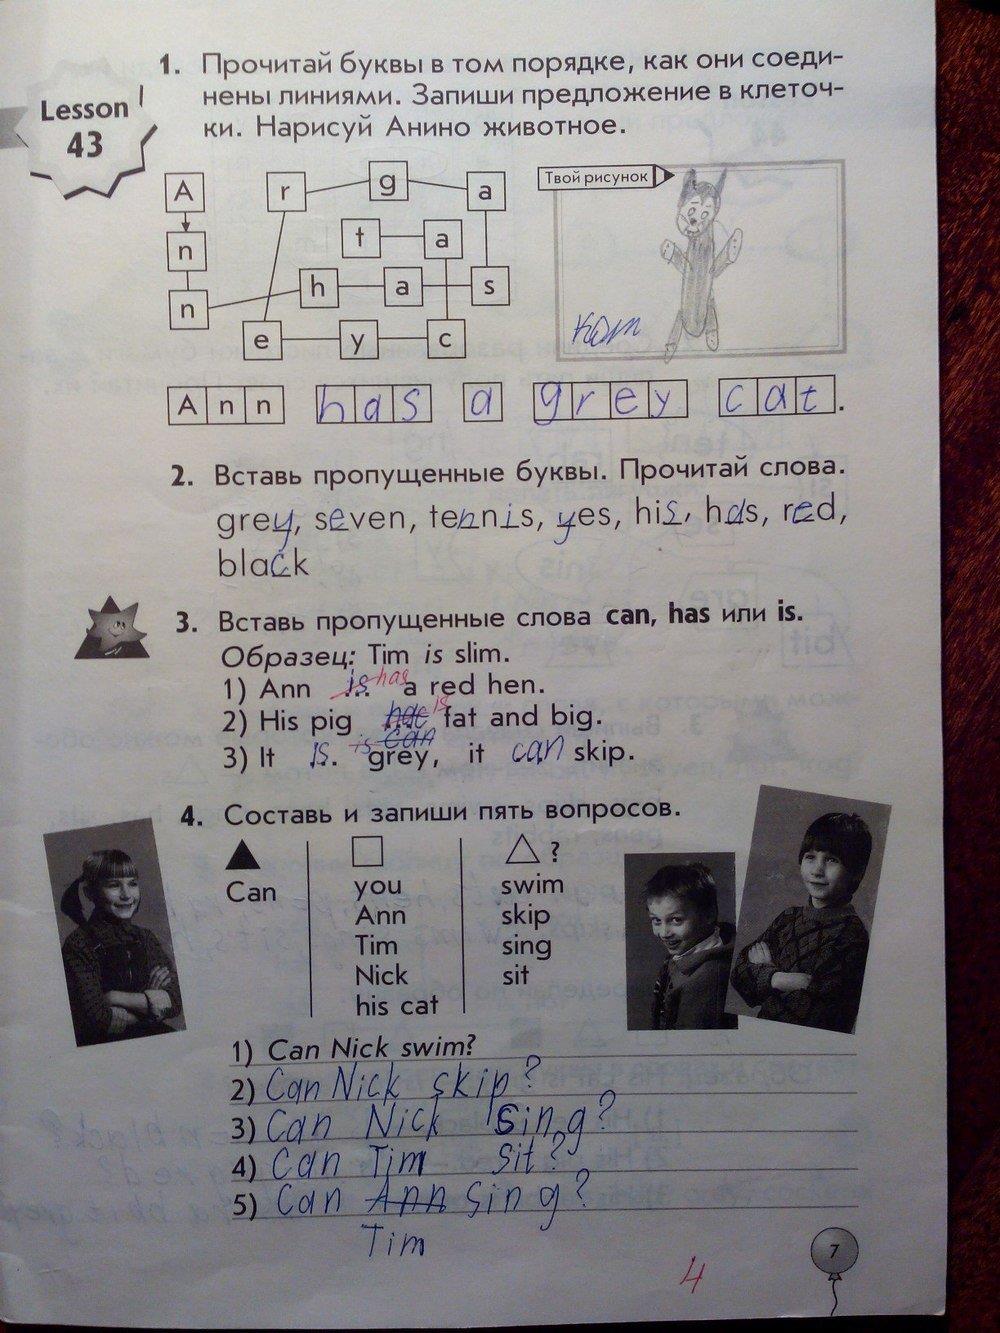 Lesson
43
1. Прочитай буквы в том порядке, как они соеди-
нены линиями. Запиши предложение в клеточ-
ки. Нарисуй Анино животное.
A r g a
n t a
n h a s
e y c
Твой рисунок
кот
Ann has a grey cat.
2. Вставь пропущенные буквы. Прочитай слова.
grey, seven, tennis, yes, his, has, red,
black
3. Вставь пропущенные слова can, has или is.
Образец: Tim is slim.
1) Ann is has a red hen.
2) His pig is fat and big.
3) It is. is can grey, it can skip.
4. Составь и запиши пять вопросов.
?
Can you swim
Ann skip
Tim sing
Nick sit
his cat
1) Can Nick swim?
2) Can Nick skip?
3) Can Nick sing?
4) Can Tim sit?
5) Can Ann sing?
Tim
4
7